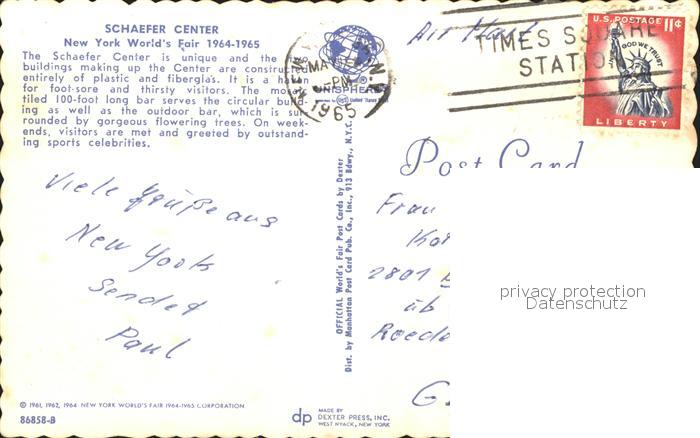 SCHAEFER CENTER
New York World's Fair 1964-1965
The Schaefer Center is unique and the
buildings making up the Center are constructed
entirely of plastic and fiberglas. It is a
for foot-sore and thirsty visitors. The
tiled 100-foot long bar serves the circular
ing as well as the outdoor bar, which is sur-
rounded by gorgeous flowering trees. On week-
ends, visitors are met and greeted by outstand-
ing sports celebrities.
UNISPHERE
1965
PM
Air Mail
TIMES SQUARE
STATION
U.S. POSTAGE 11¢
IN GOD WE TRUST
LIBERTY
Post Card
Viele Grüße aus
New York
sendet
Paul
OFFICIAL World's Fair Post Cards by Dexter
Dist. by Manhattan Post Card Pub. Co., Inc., 913 Bdwy., N.Y.C.
Frau
2801
üb
privacy protection
Datenschutz
© 1961, 1962, 1964 NEW YORK WORLD'S FAIR 1964-1965 CORPORATION
86858-B
dp MADE BY
DEXTER PRESS, INC.
WEST NYACK, NEW YORK